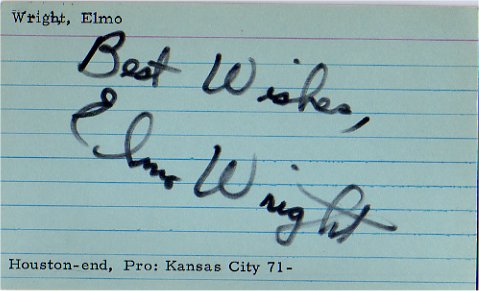 Wright, Elmo
Best Wishes,
Elmo Wright
Houston-end, Pro: Kansas City 71-